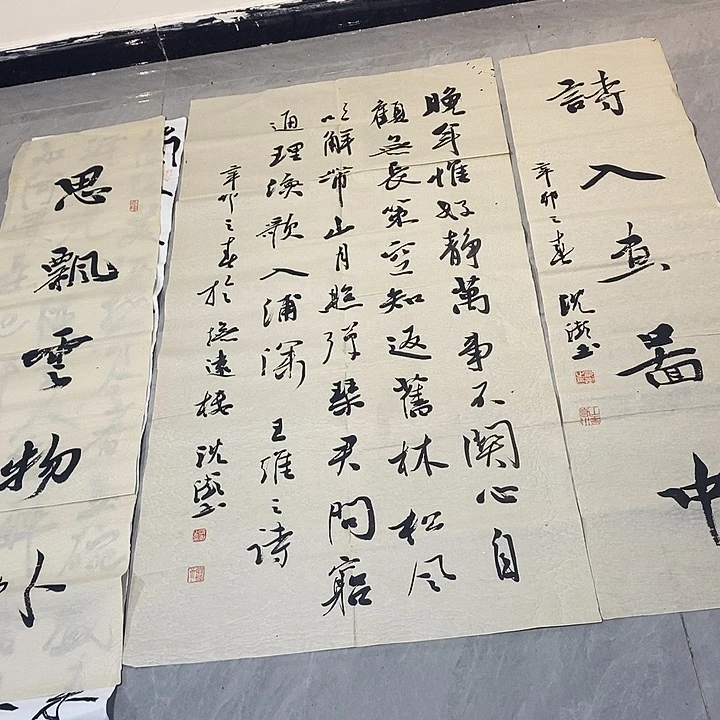 詩入畫圖中
辛卯之春 沈
晚年惟好靜萬事不關心自
顧無長策空知返舊林松風
吹解帶山月照彈琴君問窮
通理漁歌入浦深 王維之詩
辛卯之春於遠樓 沈
思飄雲物外